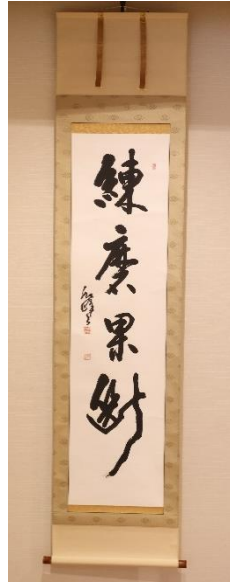 練磨果断